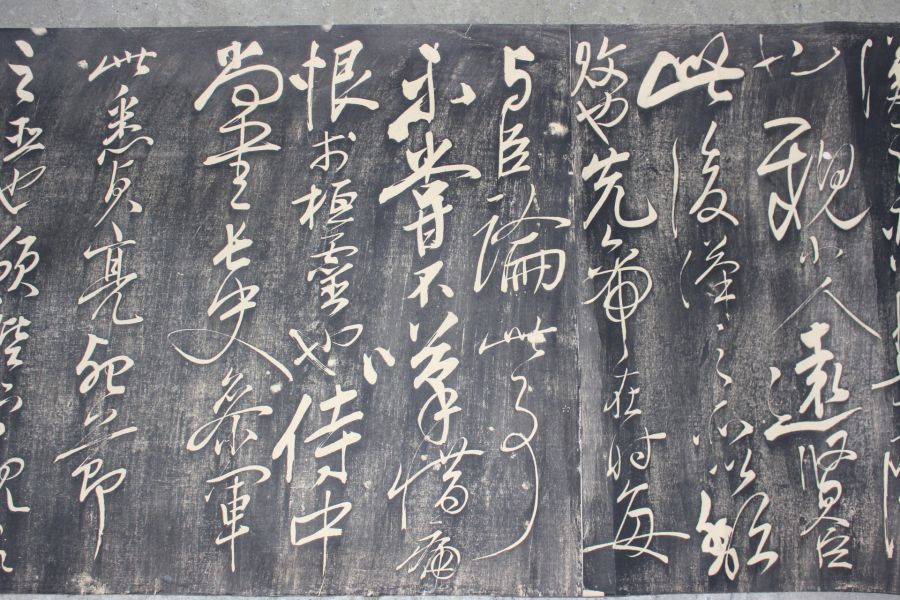 也親小人遠賢臣
此後漢之所以頹
敗也先帝在时每
与臣論此事
未嘗不嘆惜痛
恨於桓靈也侍中
尚書長史參軍
此悉貞亮死節
之臣也願陛下親之